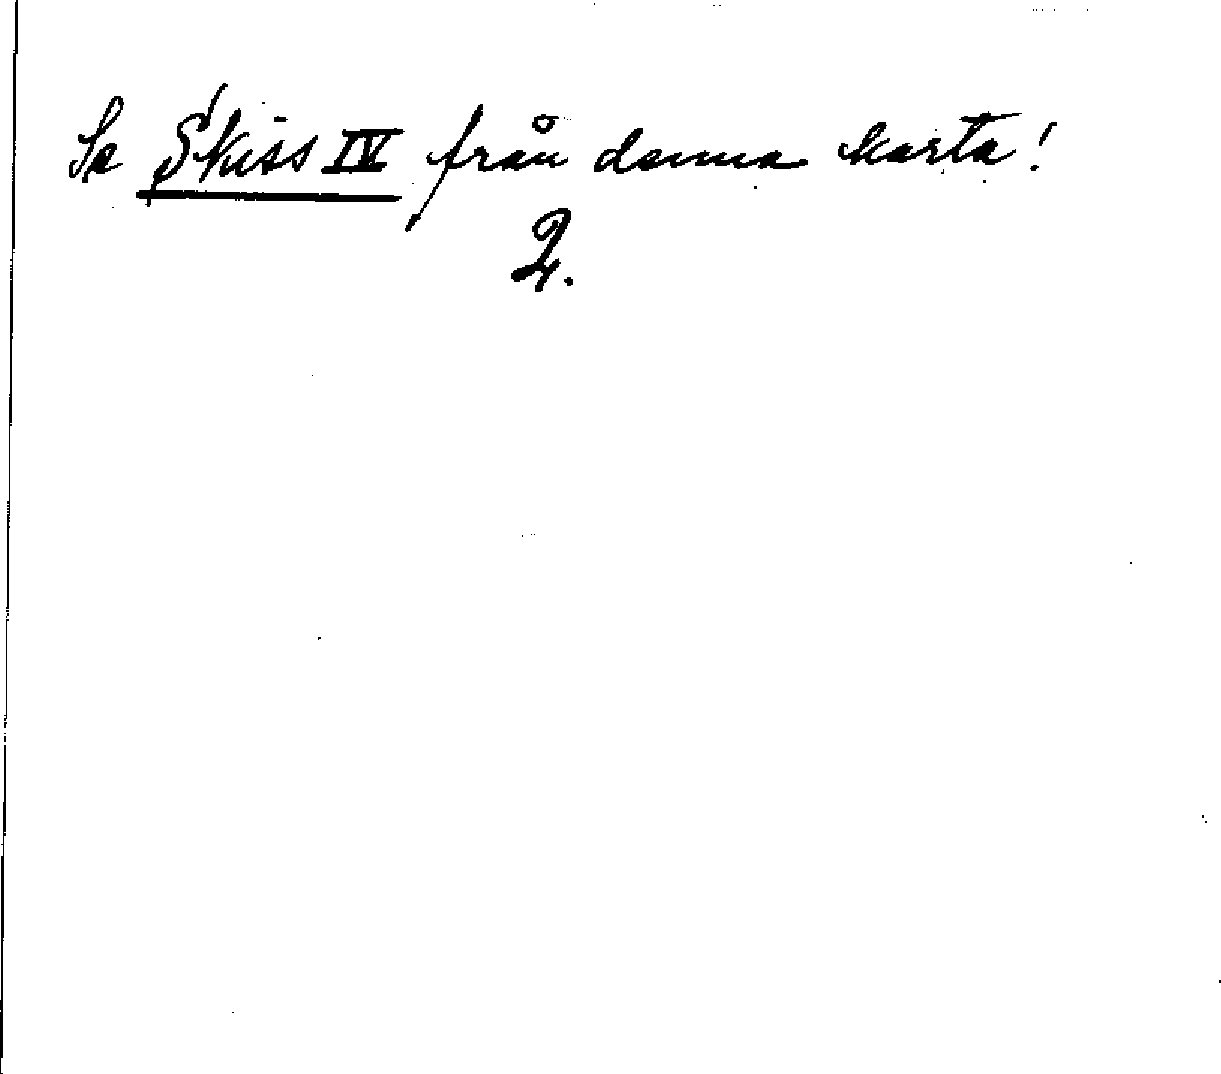 Se Skiss IV från denna karta!
2.